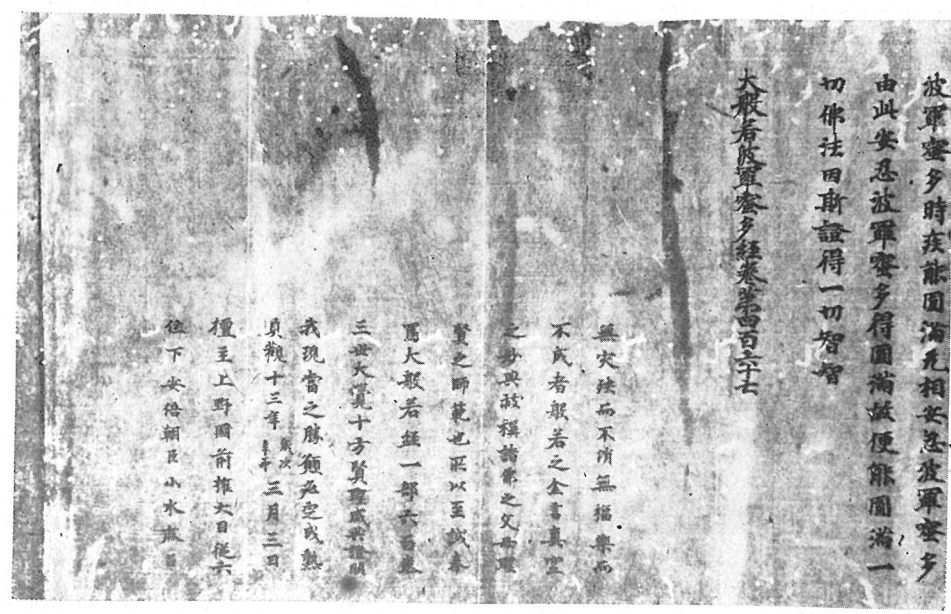 波羅蜜多時疾能圓滿无相安忍波羅蜜多
由此安忍波羅蜜多得圓滿故便能圓滿一
切佛法因斯證得一切智智
大般若波羅蜜多經卷第四百六十七
無灾殃而不消無福樂而
不成者般若之金言真空
之妙典故稱諸佛之父母聖
賢之師範也所以至誠奉
寫大般若經一部六百卷
三世大覺十方賢聖咸共證明
我現當之勝願必定成熟
貞觀十三年歲次辛卯三月三日
檀主上野國前權大目從六
位下安倍朝臣小水麿